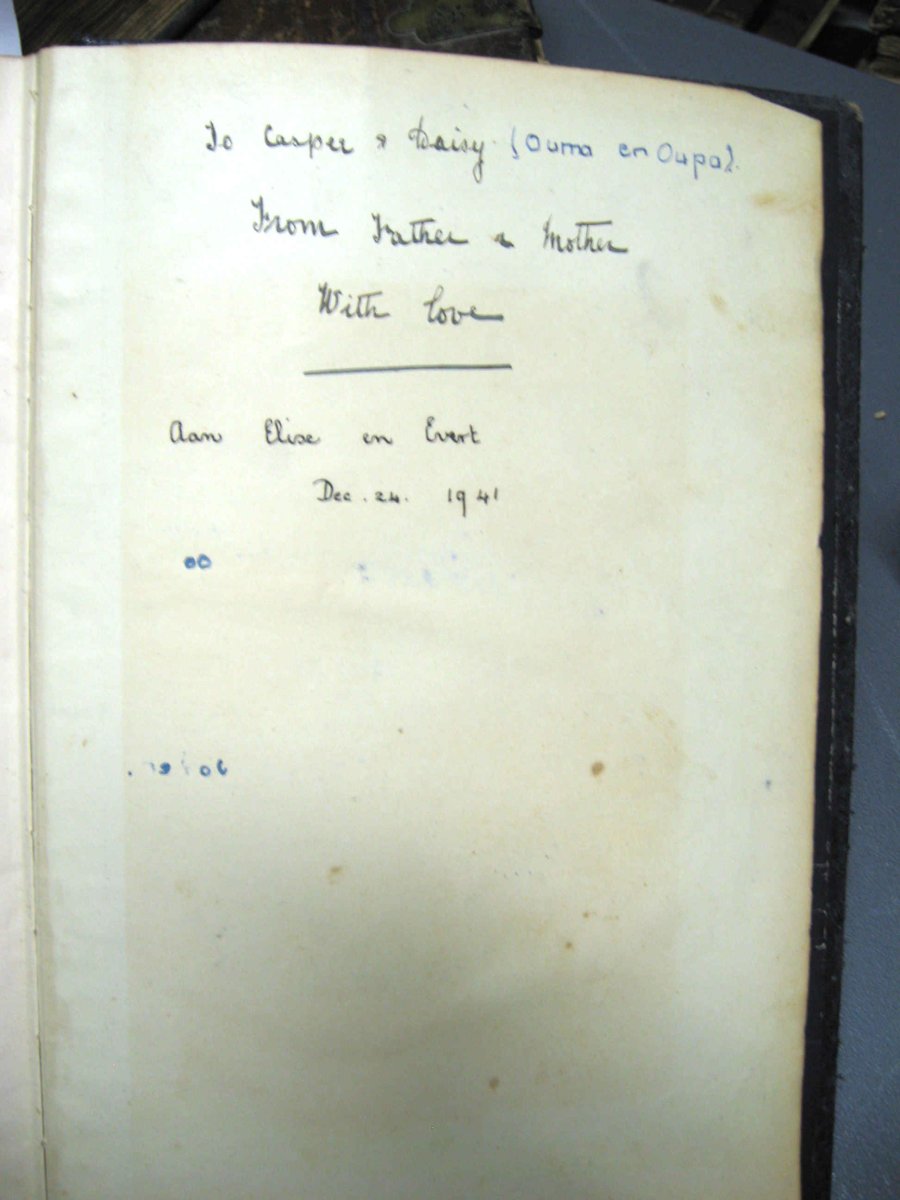 To Casper & Daisy (Ouma en Oupa).
From Father & Mother
With love
Aan Elise en Evert
Dec. 24. 1941